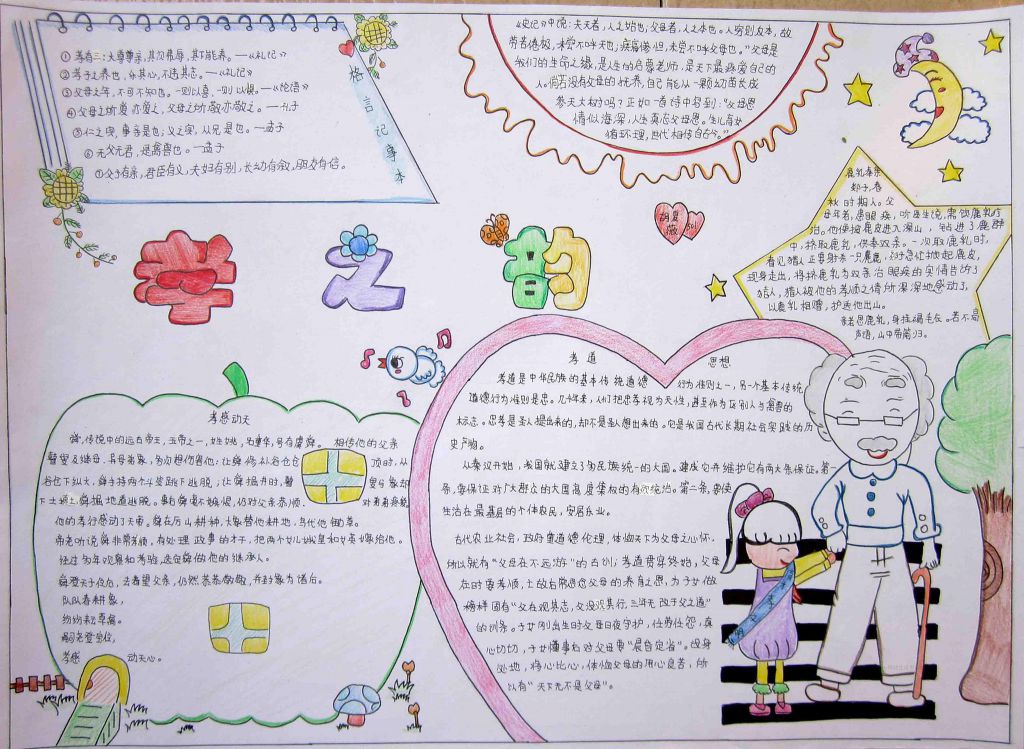 ①孝有三:大尊尊亲,其次弗辱,其下能养。——《礼记》
②孝子之养也,乐其心,不违其志。——《礼记》
③父母之年,不可不知也。一则以喜,一则以惧。——《论语》
④父母之所爱亦爱之,父母之所敬亦敬之。——孔子
⑤仁之实,事亲是也;义之实,从兄是也。——孟子
⑥无父无君,是禽兽也。——孟子
⑦父子有亲,君臣有义,夫妇有别,长幼有叙,朋友有信。
格言记事本
《史记》中说:夫天者,人之始也;父母者,人之本也。人穷则反本,故
劳苦倦极,未尝不呼天也;疾痛惨怛,未尝不呼父母也。”父母是
我们的生命之源,是人生的启蒙老师,是天下最疼爱自己的
人。倘若没有父母的抚养,自己能从一颗幼苗长成
参天大树吗?正如一首诗中写到:“父母恩
情似海深,人生莫忘父母恩。生儿育女
循环理,世代相传自古今。”
鹿乳奉亲
郯子,春
秋时期人。父
母年老,患眼疾,听医生说,需饮鹿乳疗
治。他便披鹿皮进入深山,钻进了鹿群
中,挤取鹿乳,供奉双亲。一次取鹿乳时,
看见猎人正要射杀一只麂鹿,郯子急忙掀起鹿皮,
现身走出,将挤鹿乳为双亲治眼疾的实情告访了
猎人,猎人被他的孝顺之情所深深地感动了,
以鹿乳相赠,护送他出山。
亲老思鹿乳,身挂褐毛衣。若不高
声语,山中带箭归。
胡夏薇
孝之韵
孝感动天
舜,传说中的远古帝王,五帝之一,姓姚,名重华,号有虞舜。相传他的父亲
瞽叟及继母、异母弟象,多次想伤害他:让舜修补谷仓仓顶时,从
谷仓下纵火,舜手持两个斗笠跳下逃脱;让舜掘井时,瞽叟与象却
下土,舜掘地道逃脱。事后舜毫不嫉恨,仍对父亲恭顺,对弟弟慈爱
他的孝行感动了天帝。舜在厉山耕种,大象替他耕地,鸟代他锄草。
帝尧听说舜非常孝顺,有处理政事的才干,把两个女儿娥皇和女英嫁给他。
经过多年观察和考验,选定舜做他的继承人。
舜登天子位后,去看望父亲,仍然恭恭敬敬,并封象为诸侯。
队队春耕象,
纷纷耘草禽。
嗣尧登宝位,
孝感动天心。
孝道思想
孝道是中华民族的基本传统道德行为准则之一,另一个基本传统
道德行为准则是忠。几千年来,人们把忠孝视为天性,甚至作为区别人与禽兽的
标志。忠孝是圣人提出来的,却不是圣人想出来的。它是我国古代长期社会实践的历
史产物。
从秦汉开始,我国就建立了多民族统一的大国。建成它并维护它有两大条保证。第一
条,要保证对广大群众的大国高度集权的有效统治。第二条,要使
生活在最基层的个体农民,安居乐业。
古代农业社会,政府重道德伦理,体恤天下为父母之心怀,
所以就有“父母在不远游”的古训,孝道贯穿始终,父母
在时要孝顺,亡故后常追念父母的养育之恩,为子女做
榜样固有“父在观其志,父没观其行,三年无改于父之道”
的训条。子女刚出生时父母日夜守护,任劳任怨,真
心切切,子女懂事后对父母要“晨昏定省”。设身
处地,将心比心,体恤父母的用心良苦,所
以有“天下无不是父母”。